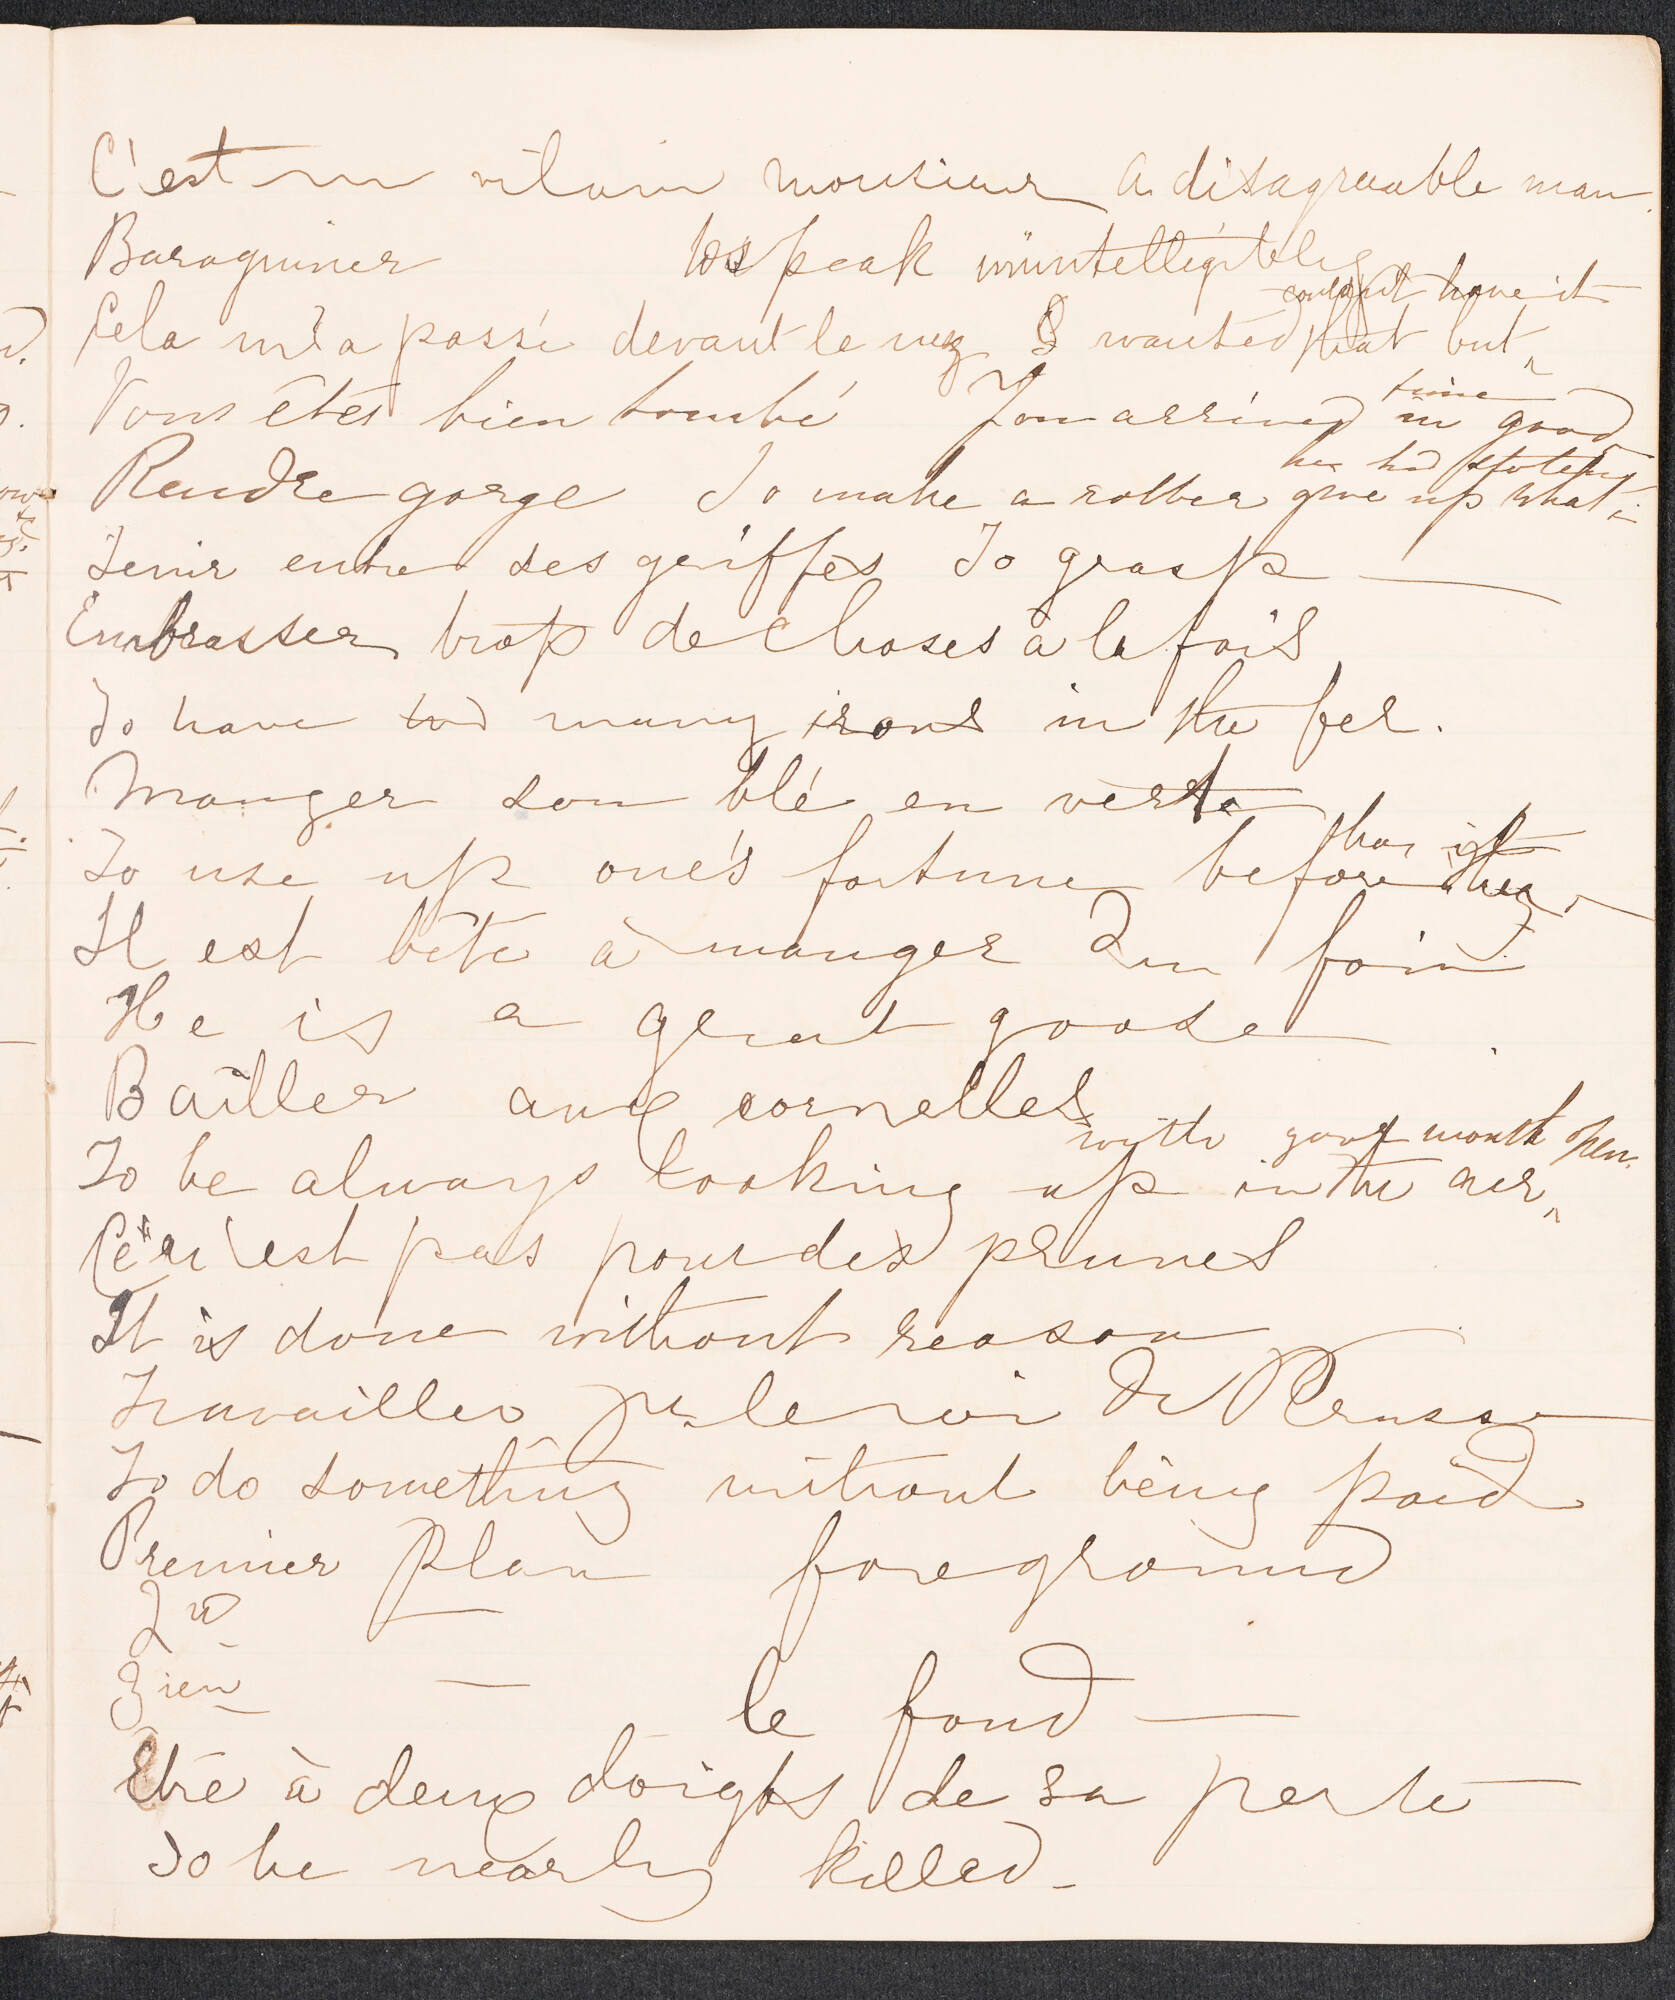 C'est un vilain monsieur A disagreeable man.
Baraguiner to speak unintelligibly
Cela m'a passé devant le nez I wanted that but couldn't have it
Vous êtes bien tombé You arrived in good time
Rendre gorge To make a robber give up what he had stolen
Tenir entre ses griffes To grasp —
Embrasser trop de choses à la fois
To have too many irons in the fer.
Manger son blé en verte
To use up one's fortune before
Il est bête à manger du foin
He is a great goose
Bailler aux cornelles
To be always looking up in the aer with your mouth open.
Ce n'est pas pour des prunes
It is done without reason
Travailler pr le roi de Prusse
To do something without being paid
Premier plan foreground
2nd —
3ien — le fond —
Etre à deux doights de sa perte
To be nearly killed —